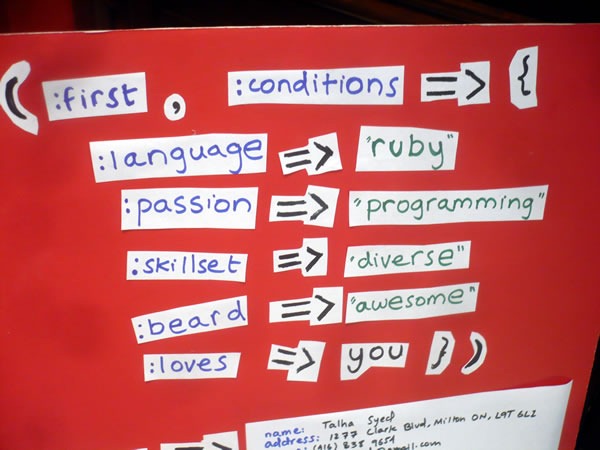 ( :first , :conditions => {
:language => "ruby"
:passion => "programming"
:skillset => "diverse"
:beard => "awesome"
:loves => you } )
=> name: Talha Syed
address: 1277 Clark Blvd, Milton ON, L9T 6L2
(416) 838 9654
@gmail.com